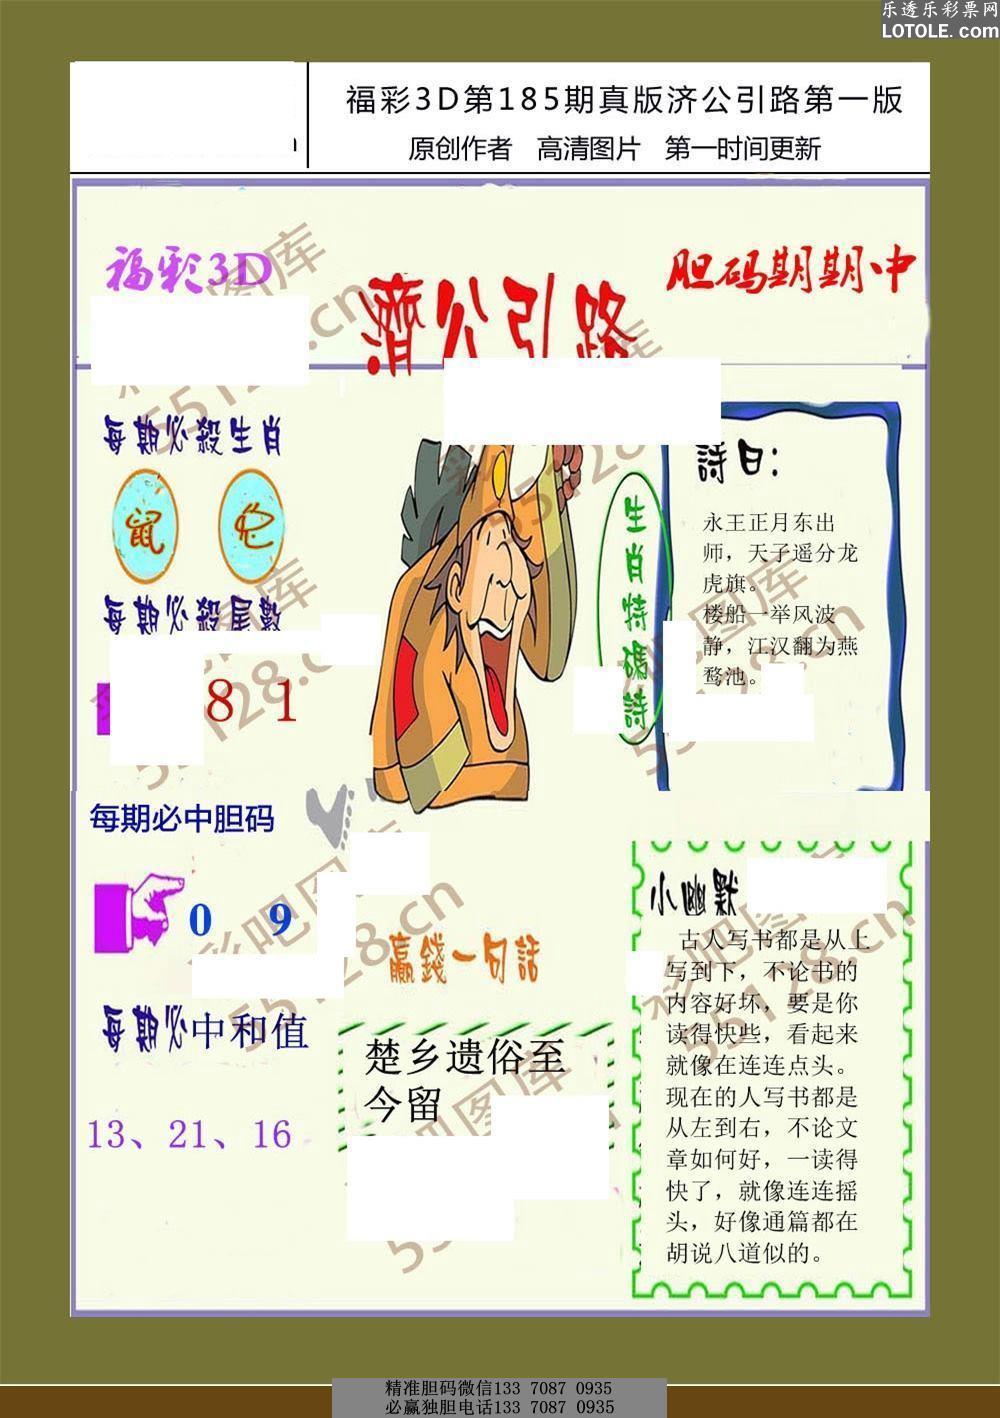 乐透乐彩票网
LOTOLE.com
福彩3D第185期真版济公引路第一版
原创作者 高清图片 第一时间更新
福彩3D
濟公引路
胆码期期中
每期必殺生肖
鼠 蛇
每期必殺尾數
8 1
每期必中胆码
0 9
每期必中和值
13、21、16
生肖特碼詩
詩曰:
永王正月东出
师，天子遥分龙
虎旗。
楼船一举风波
静，江汉翻为燕
鹜池。
赢錢一句話
楚乡遗俗至
今留
小幽默
古人写书都是从上
写到下，不论书的
内容好坏，要是你
读得快些，看起来
就像在连连点头。
现在的人写书都是
从左到右，不论文
章如何好，一读得
快了，就像连连摇
头，好像通篇都在
胡说八道似的。
彩吧图库
55128.cn
精准胆码微信133 7087 0935
必赢独胆电话133 7087 0935